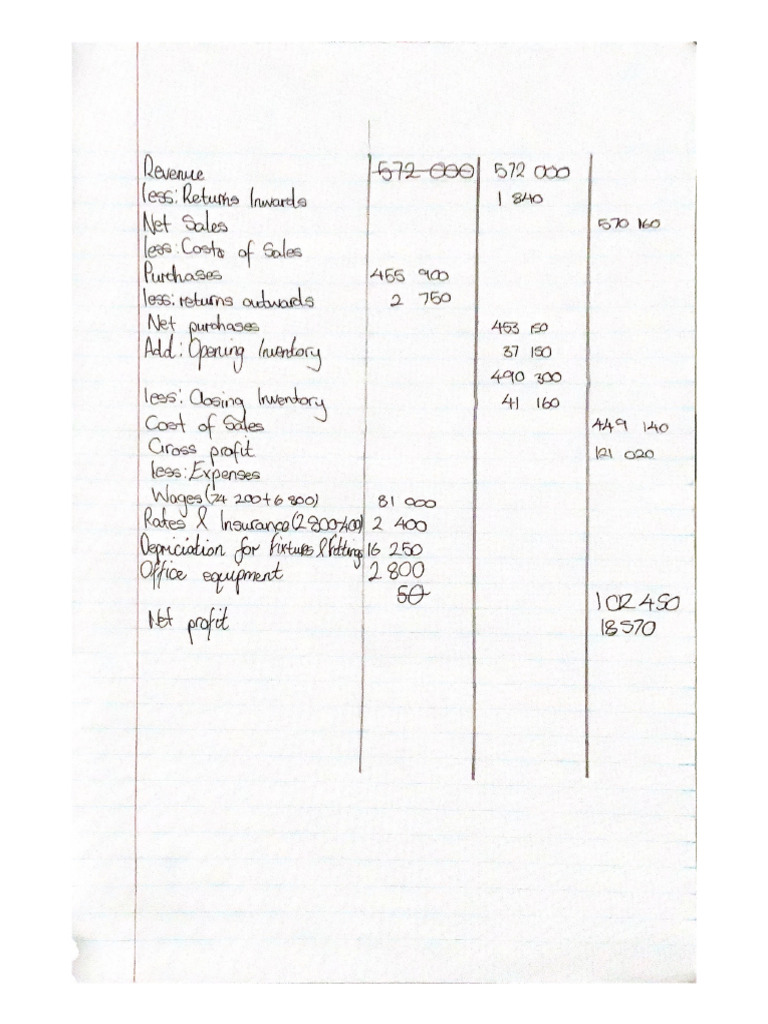 Revenue 572 000 572 000
less: Returns Inwards 1 840
Net Sales 570 160
less: Costs of Sales
Purchases 455 900
less: returns outwards 2 750
Net purchases 453 150
Add: Opening Inventory 37 150
490 300
less: Closing Inventory 41 160
Cost of Sales 449 140
Gross profit 121 020
less: Expenses
Wages (74 200+6 800) 81 000
Rates & Insurance (2 800-400) 2 400
Depriciation for fixtures & fitting 16 250
Office equipment 2 800
50 102 450
Net profit 18 570